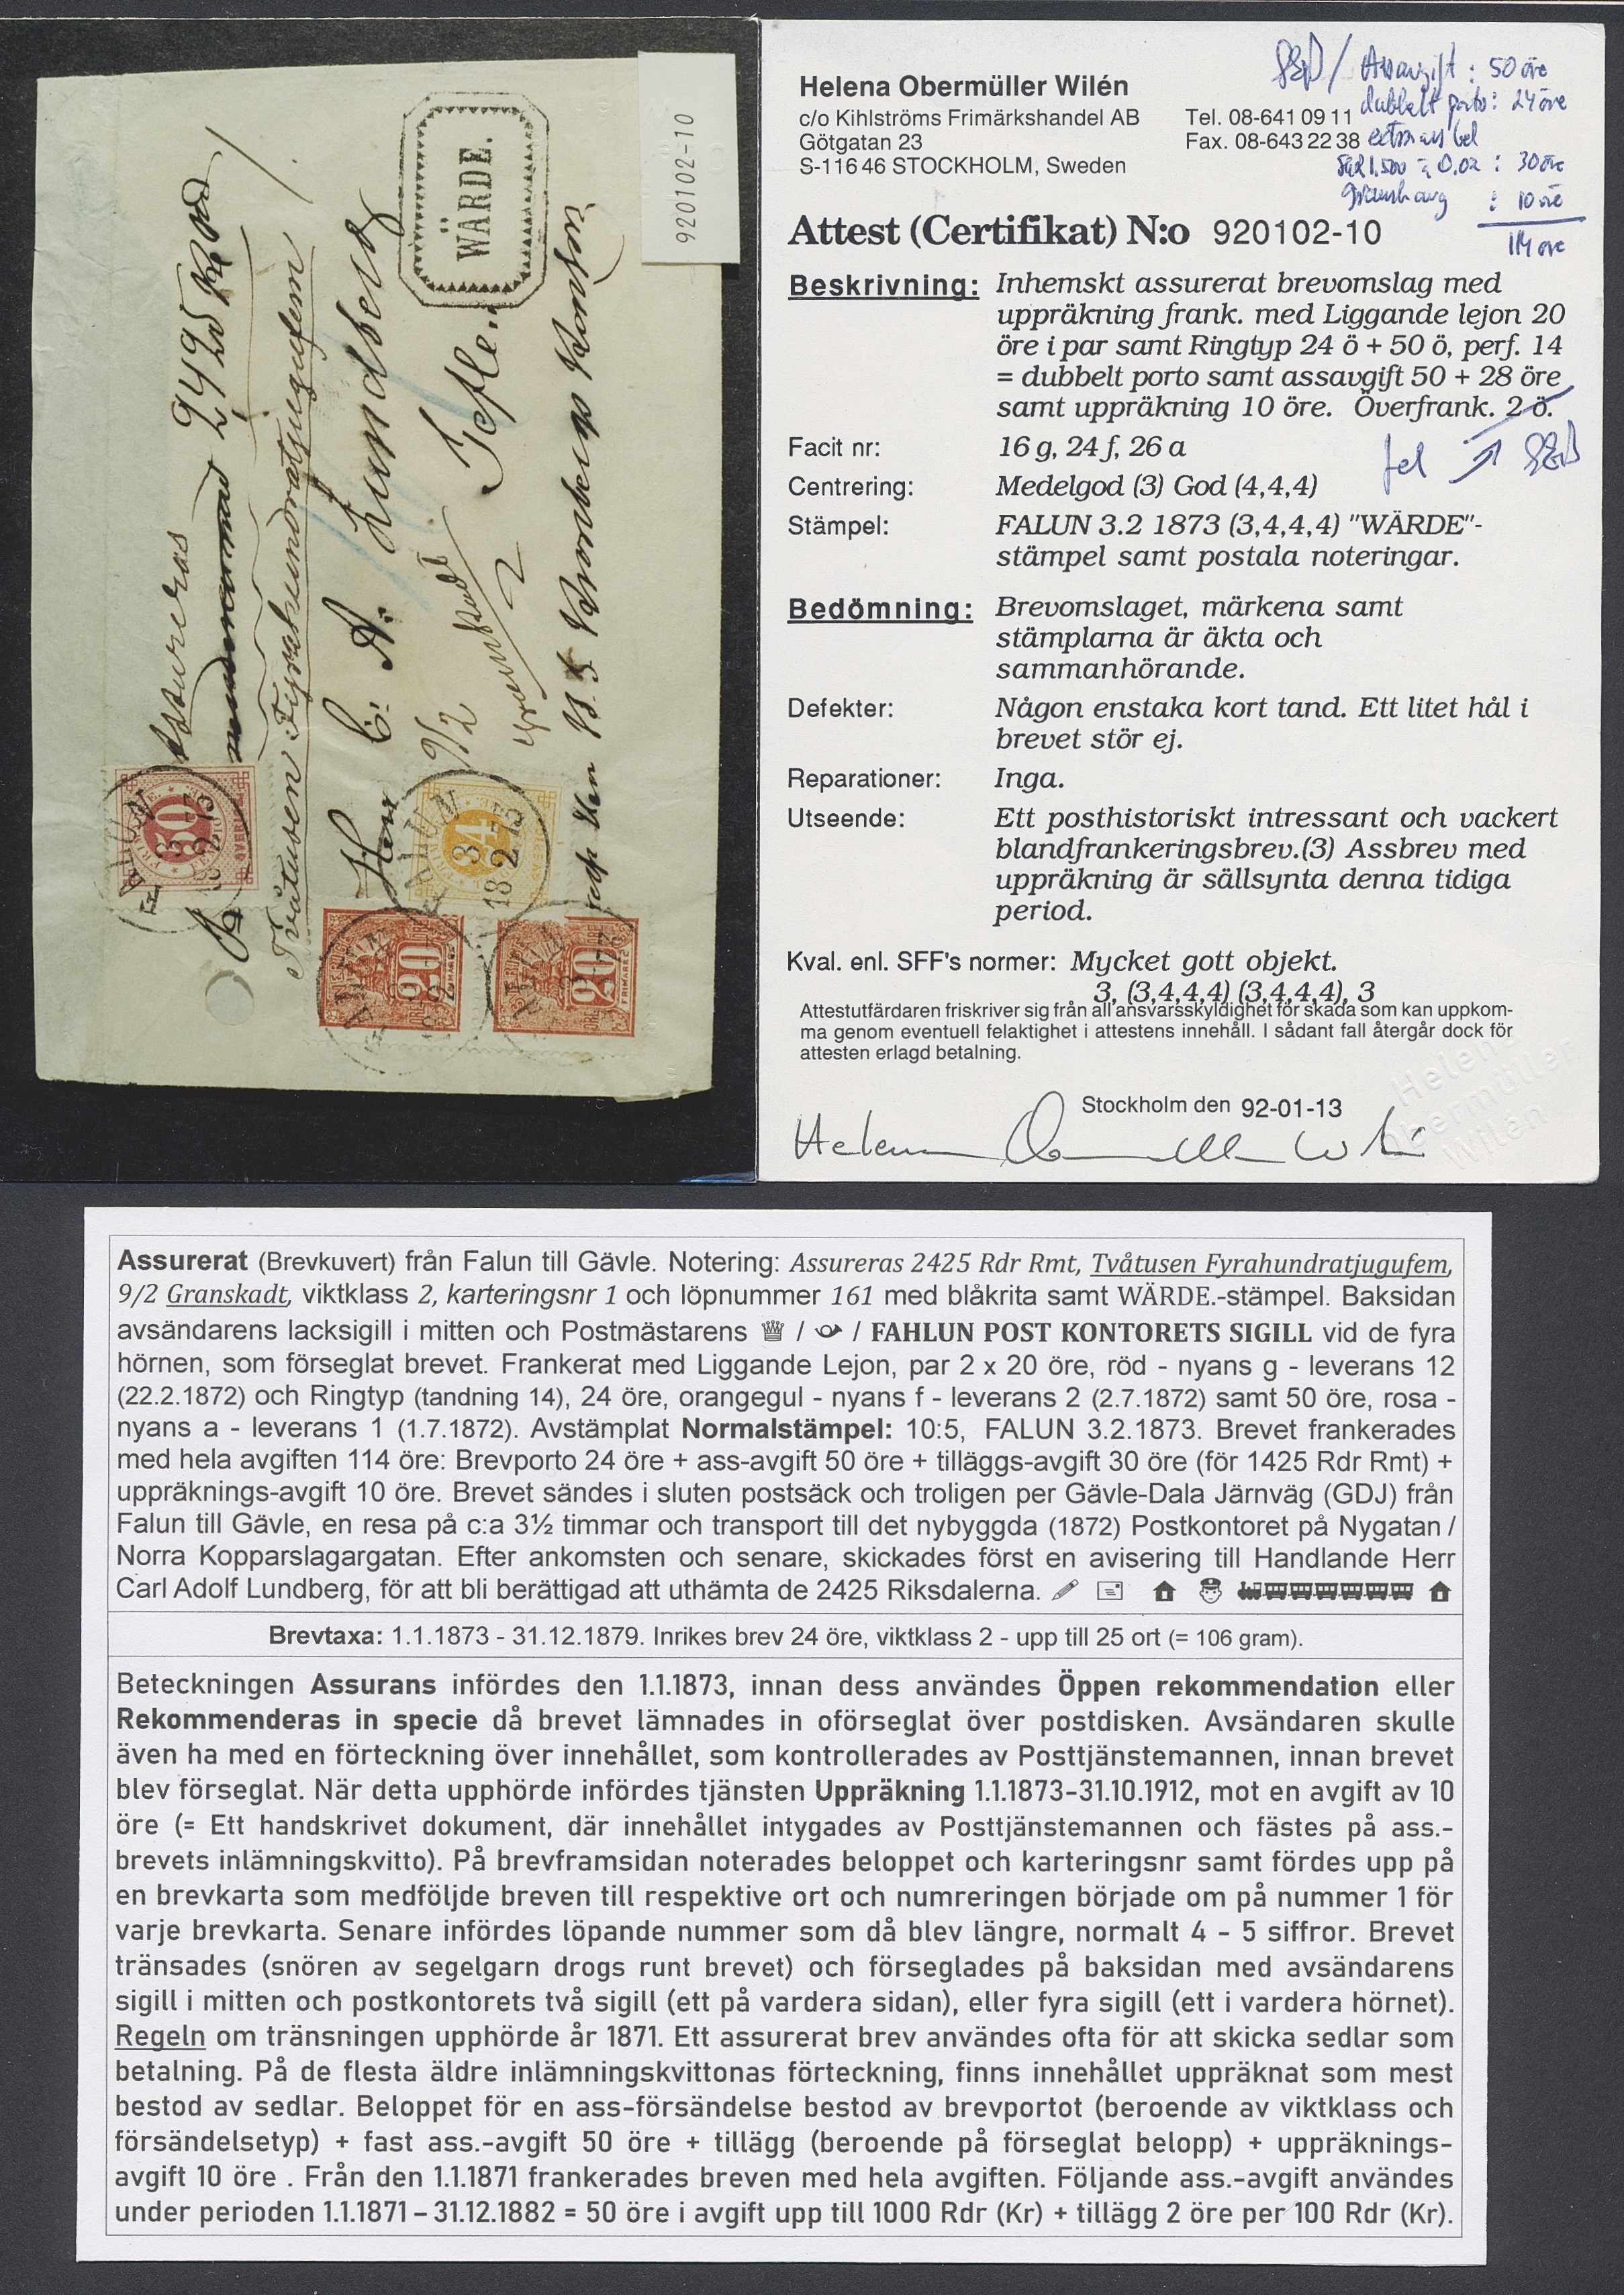 920102-10
WÄRDE.
Assureras
2425 Rdr Rmt
Tvåtusen Fyrahundratjugufem
Herr C. A. Lundberg
Gefle.
9/2 Granskadt
2
FALUN
3
2 73
50
FALUN
3
18 2 73
24
FALUN
20
FRIMÄRKE
FALUN
3
20
FRIMÄRKE
Helena Obermüller Wilén
c/o Kihlströms Frimärkshandel AB
Götgatan 23
S-116 46 STOCKHOLM, Sweden
Tel. 08-641 09 11
Fax. 08-643 22 38
Assavgift : 50 öre
dubbelt porto: 24 öre
: 30 öre
: 10 öre
114 öre
Attest (Certifikat) N:o 920102-10
Beskrivning: Inhemskt assurerat brevomslag med
uppräkning frank. med Liggande lejon 20
öre i par samt Ringtyp 24 ö + 50 ö, perf. 14
= dubbelt porto samt assavgift 50 + 28 öre
samt uppräkning 10 öre. Överfrank. 2 ö.
fel
Facit nr: 16 g, 24 f, 26 a
Centrering: Medelgod (3) God (4,4,4)
Stämpel: FALUN 3.2 1873 (3,4,4,4) "WÄRDE"-
stämpel samt postala noteringar.
Bedömning: Brevomslaget, märkena samt
stämplarna är äkta och
sammanhörande.
Defekter: Någon enstaka kort tand. Ett litet hål i
brevet stör ej.
Reparationer: Inga.
Utseende: Ett posthistoriskt intressant och vackert
blandfrankeringsbrev.(3) Assbrev med
uppräkning är sällsynta denna tidiga
period.
Kval. enl. SFF's normer: Mycket gott objekt.
3, (3,4,4,4) (3,4,4,4), 3
Attestutfärdaren friskriver sig från all ansvarsskyldighet för skada som kan uppkom-
ma genom eventuell felaktighet i attestens innehåll. I sådant fall återgår dock för
attesten erlagd betalning.
Helena
Obermüller
Wilén
Stockholm den 92-01-13
Helena Obermüller Wilén
Assurerat (Brevkuvert) från Falun till Gävle. Notering: Assureras 2425 Rdr Rmt, Tvåtusen Fyrahundratjugufem,
9/2 Granskadt, viktklass 2, karteringsnr 1 och löpnummer 161 med blåkrita samt WÄRDE.-stämpel. Baksidan
avsändarens lacksigill i mitten och Postmästarens / / FAHLUN POST KONTORETS SIGILL vid de fyra
hörnen, som förseglat brevet. Frankerat med Liggande Lejon, par 2 x 20 öre, röd - nyans g - leverans 12
(22.2.1872) och Ringtyp (tandning 14), 24 öre, orangegul - nyans f - leverans 2 (2.7.1872) samt 50 öre, rosa -
nyans a - leverans 1 (1.7.1872). Avstämplat Normalstämpel: 10:5, FALUN 3.2.1873. Brevet frankerades
med hela avgiften 114 öre: Brevporto 24 öre + ass-avgift 50 öre + tilläggs-avgift 30 öre (för 1425 Rdr Rmt) +
uppräknings-avgift 10 öre. Brevet sändes i sluten postsäck och troligen per Gävle-Dala Järnväg (GDJ) från
Falun till Gävle, en resa på c:a 3½ timmar och transport till det nybyggda (1872) Postkontoret på Nygatan /
Norra Kopparslagargatan. Efter ankomsten och senare, skickades först en avisering till Handlande Herr
Carl Adolf Lundberg, för att bli berättigad att uthämta de 2425 Riksdalerna.
Brevtaxa: 1.1.1873 - 31.12.1879. Inrikes brev 24 öre, viktklass 2 - upp till 25 ort (= 106 gram).
Beteckningen Assurans infördes den 1.1.1873, innan dess användes Öppen rekommendation eller
Rekommenderas in specie då brevet lämnades in oförseglat över postdisken. Avsändaren skulle
även ha med en förteckning över innehållet, som kontrollerades av Posttjänstemannen, innan brevet
blev förseglat. När detta upphörde infördes tjänsten Uppräkning 1.1.1873–31.10.1912, mot en avgift av 10
öre (= Ett handskrivet dokument, där innehållet intygades av Posttjänstemannen och fästes på ass.-
brevets inlämningskvitto). På brevframsidan noterades beloppet och karteringsnr samt fördes upp på
en brevkarta som medföljde breven till respektive ort och numreringen började om på nummer 1 för
varje brevkarta. Senare infördes löpande nummer som då blev längre, normalt 4 - 5 siffror. Brevet
tränsades (snören av segelgarn drogs runt brevet) och förseglades på baksidan med avsändarens
sigill i mitten och postkontorets två sigill (ett på vardera sidan), eller fyra sigill (ett i vardera hörnet).
Regeln om tränsningen upphörde år 1871. Ett assurerat brev användes ofta för att skicka sedlar som
betalning. På de flesta äldre inlämningskvittonas förteckning, finns innehållet uppräknat som mest
bestod av sedlar. Beloppet för en ass-försändelse bestod av brevportot (beroende av viktklass och
försändelsetyp) + fast ass.-avgift 50 öre + tillägg (beroende på förseglat belopp) + uppräknings-
avgift 10 öre . Från den 1.1.1871 frankerades breven med hela avgiften. Följande ass.-avgift användes
under perioden 1.1.1871 – 31.12.1882 = 50 öre i avgift upp till 1000 Rdr (Kr) + tillägg 2 öre per 100 Rdr (Kr).